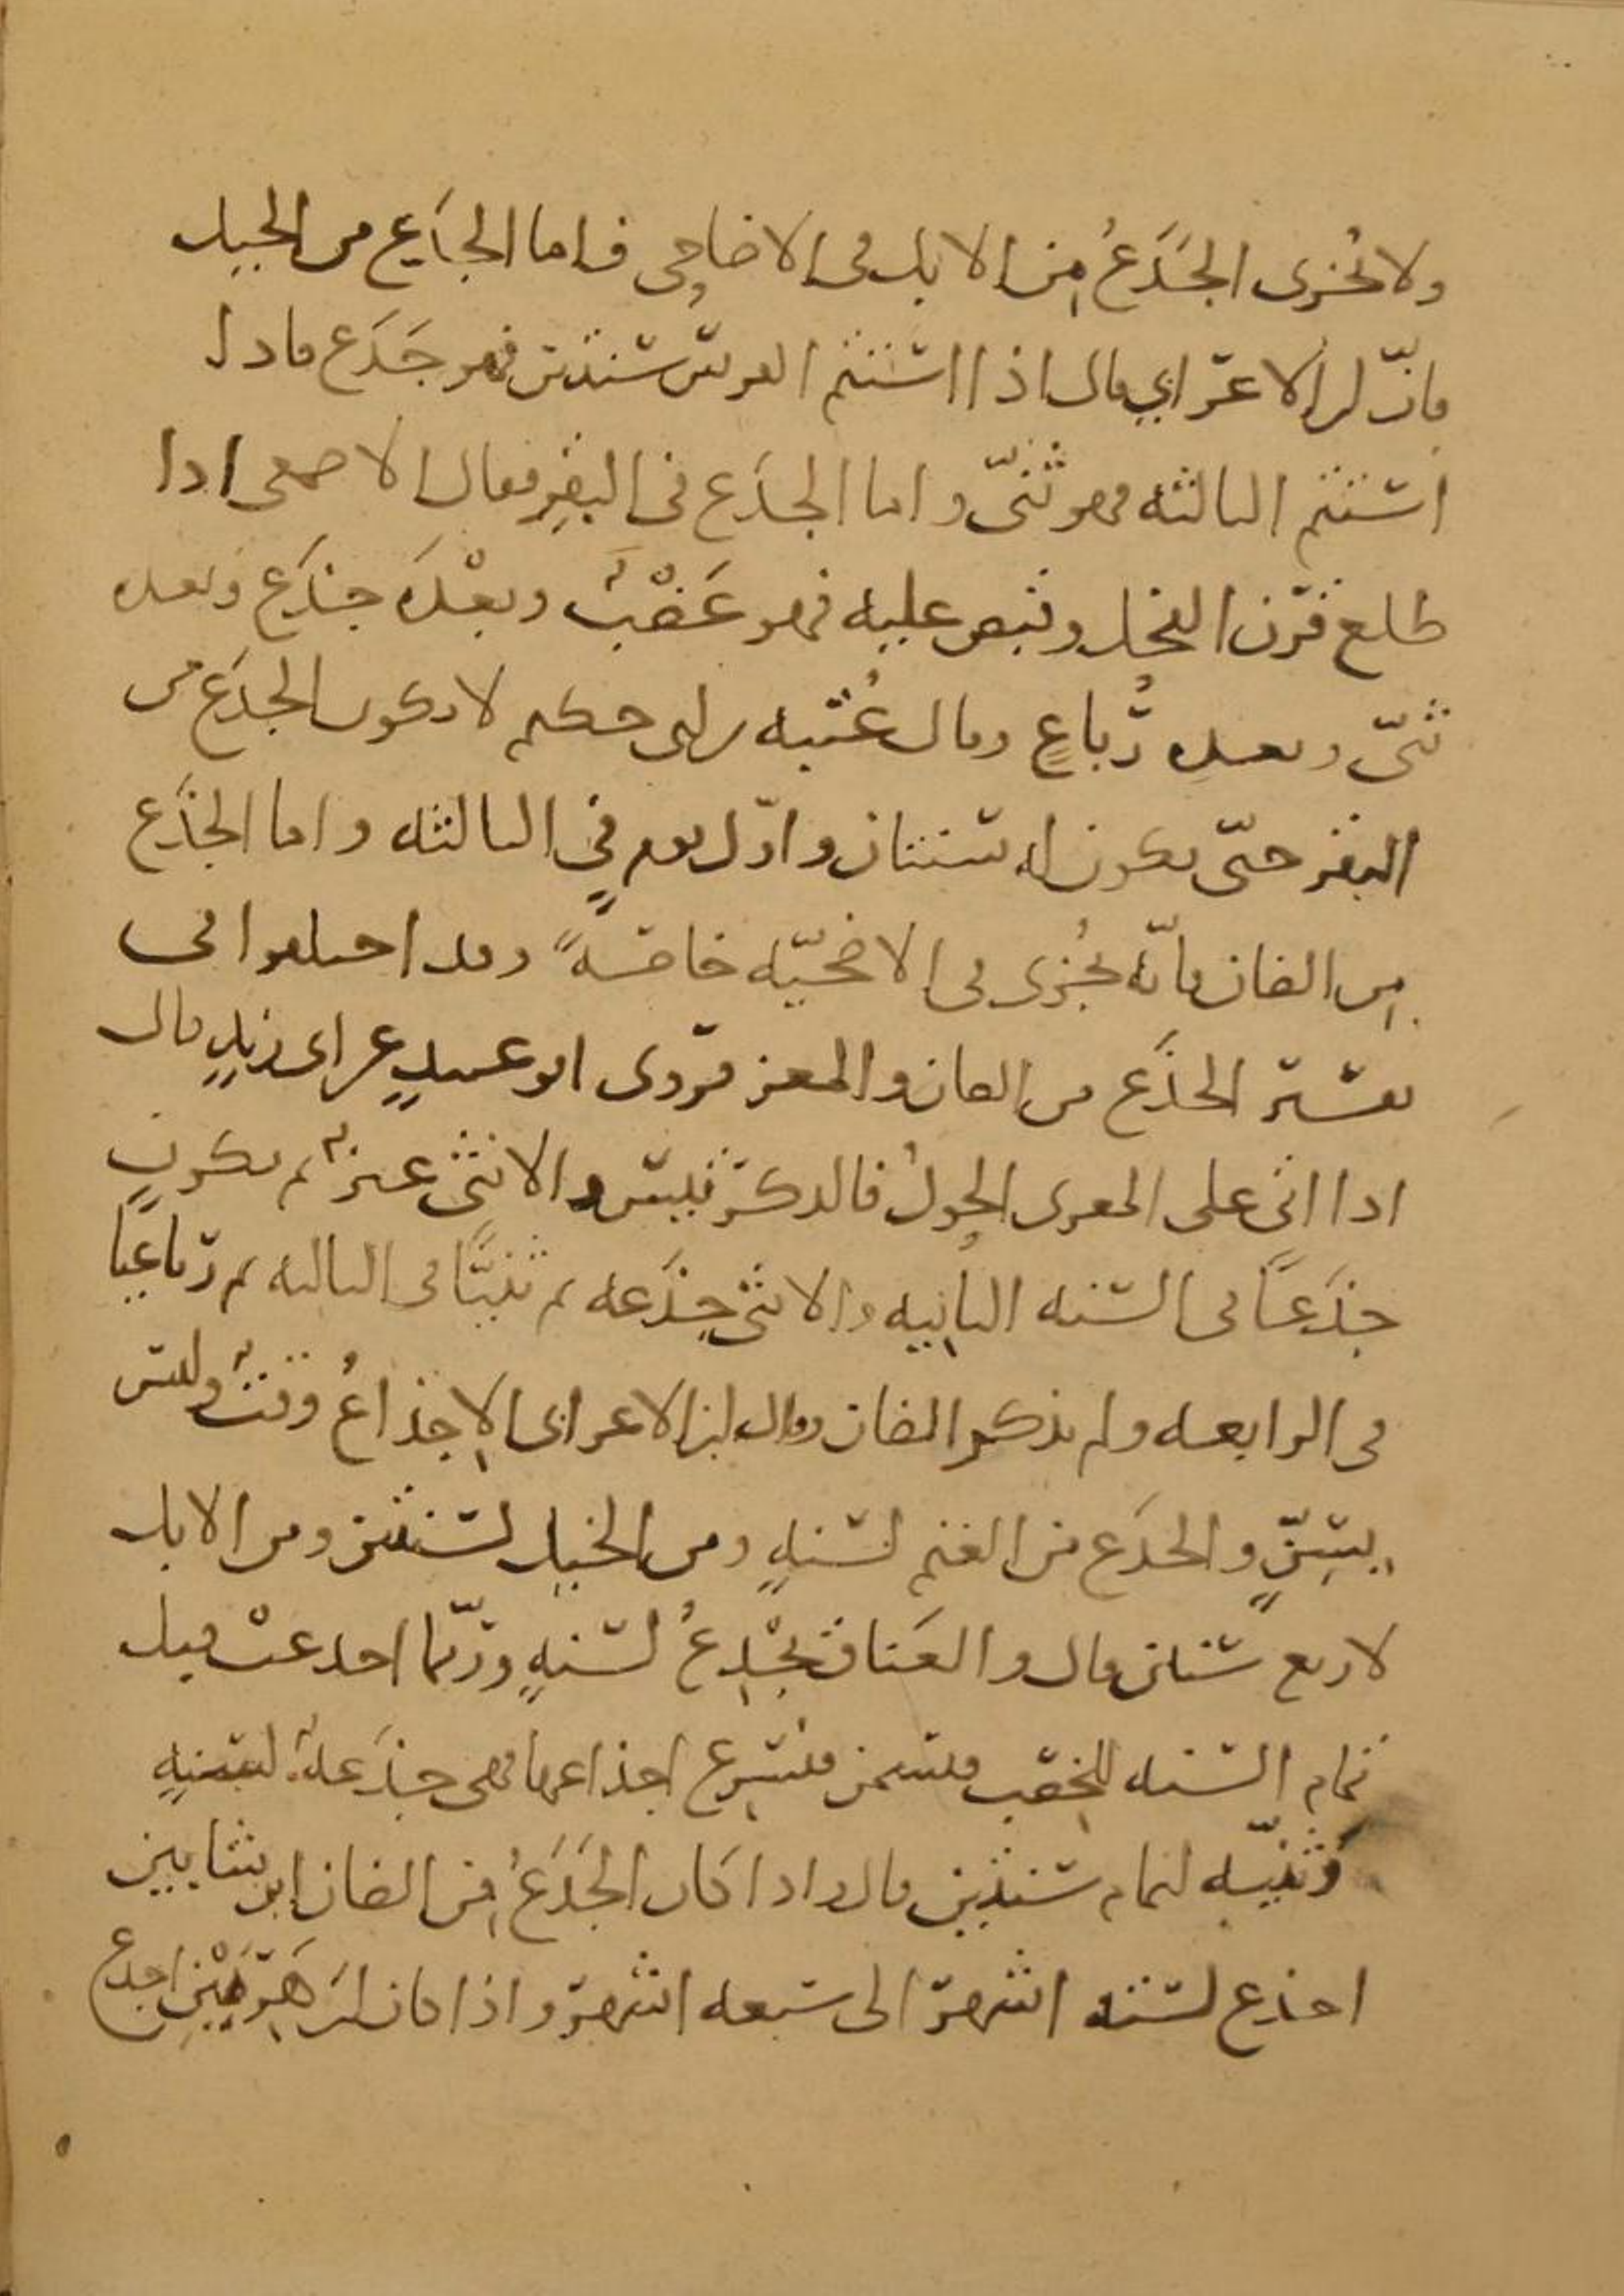 ولا تُجزى الجَذَعُ مِن الابل فى الاضاحِى فاما الجذَع من الخيل
فانّ ابن الاعرابي قال اذا استتم الفرس سنتين فهو جَذَع فاذا
استتم الثالثه فهو ثنىّ واما الجذَع فى البقر فقال الاصمعى اذا
طلع قرن العجل وقبض عليه فهو عَضْبٌ وبعْدَه جذَع وبعده
ثنىّ وبعده رَباعٍ وقال عُتْبه بن ابى حكيم لا يكون الجذَع من
البقر حتّى يكون له سنتان واوّل يومٍ فى الثالثه واما الجذَع
مِن الضان فانّه يُجزى فى الاضحيّه خاصّةً وقد اختلفوا فى
تفسير الجذَع من الضان والمعز فروى ابو عبيدٍ عن ابى زيدٍ قال
اذا اتى على المعزى الحولُ فالذكر تيس والانثى عنزٌ ثم يكون
جذَعًا فى السنه الثانيه والانثى جذَعه ثم ثنيًّا فى الثالثه ثم رباعيًا
فى الرابعه ولم يذكر الضان وقال ابن الاعرابى الإجذاعُ وقتٌ وليس
بسِنٍّ والجذَع من الغنم لسنهٍ ومن الخيل لسنتين ومن الابل
لاربع سنين قال والعَناق تُجْذِعُ لسنهٍ وربّما اجذعتْ قبل
تمام السنه للخصب فتسمن فيسرع اجذاعها فهى جذَعهٌ لسنهٍ
وثنيّه لتمام سنتين قال واذا كان الجَذَعُ مِن الضان ابن شابين
اجذع لسته اشهر الى سبعه اشهر واذا كان ابن هَرِمَيْنِ اجذع